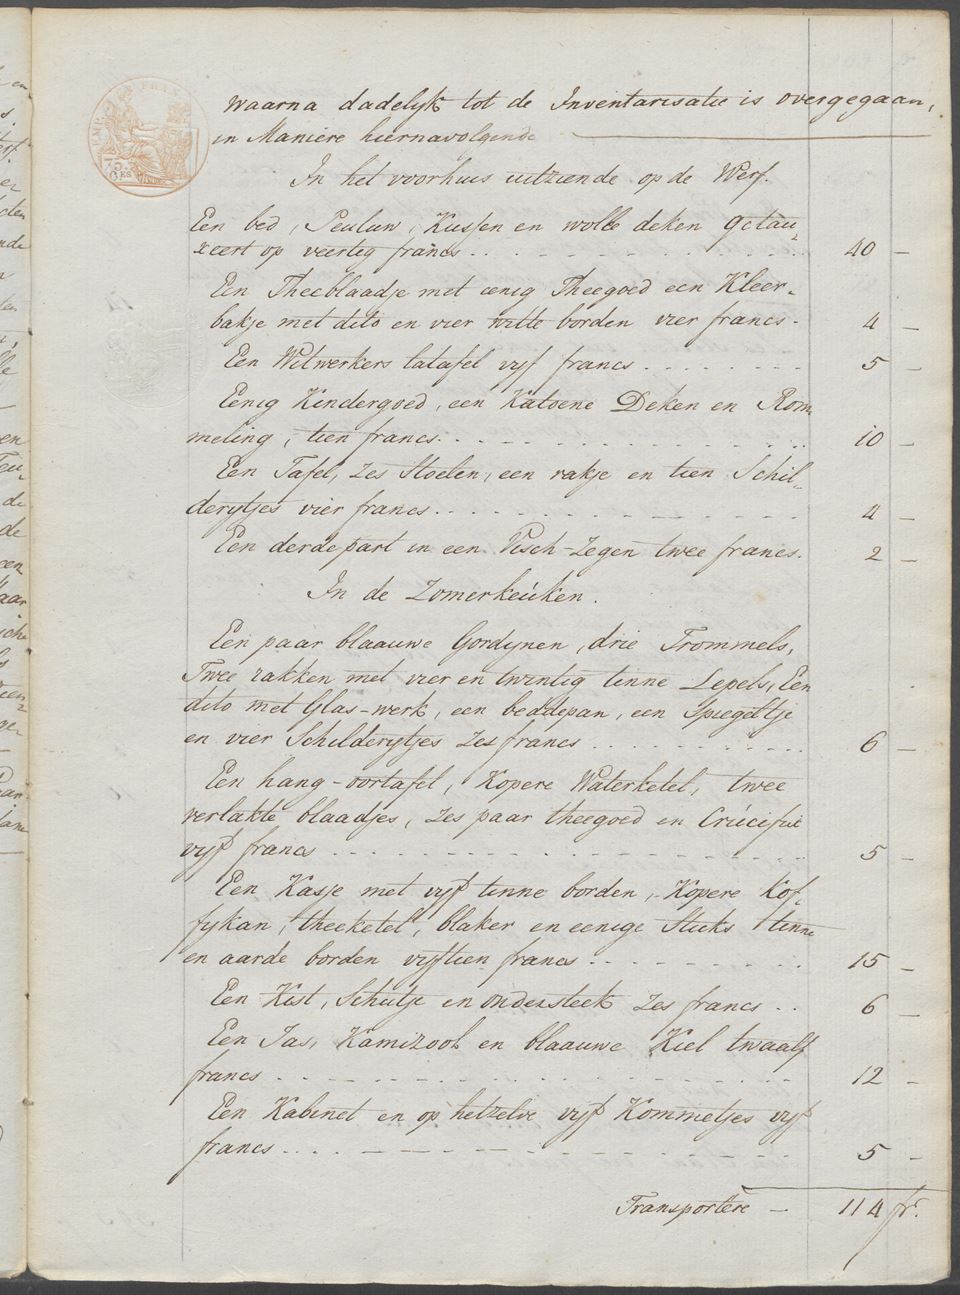 waarna dadelyk tot de Inventarisatie is overgegaan,
in Maniere hiernavolgende
In het voorhuis uitziende op de Werf.
Een bed, Peuluw, Kussen en wolle deken getau-
xeert op veertig francs 40 -
Een Theeblaadje met eenig Theegoed een Kleer-
bakje met dito en vier witte borden vier francs. 4 -
Een Witwerkers latafel vyf francs 5 -
Eenig Kindergoed, een Katoene Deken en Rom-
meling, tien francs. 10 -
Een Tafel, zes Stoelen, een rakje en tien Schil-
derytjes vier francs. 4 -
Een derde part in een Visch-Zegen twee francs. 2 -
In de Zomerkeuken.
Een paar blaauwe Gordynen, drie Trommels,
Twee rakken met vier en twintig tinne Lepels, Een
dito met Glas-werk, een beddepan, een Spiegeltje
en vier Schilderytjes zes francs 6 -
Een hang-oortafel, Kopere Waterketel, twee
verlakte blaadjes, zes paar theegoed en Crucifix
vyf francs 5 -
Een Kasje met vyf tinne borden, Kopere Kof-
fykan, theeketel, blaker en eenige Stuks tinne
en aarde borden vyftien francs 15 -
Een Kist, Schutje en ondersteek zes francs 6 -
Een Jas, Kamizool en blaauwe Kiel twaalf
francs 12 -
Een Kabinet en op hetzelve vyf Kommetjes vyf
francs 5 -
Transportere - 114 fr.